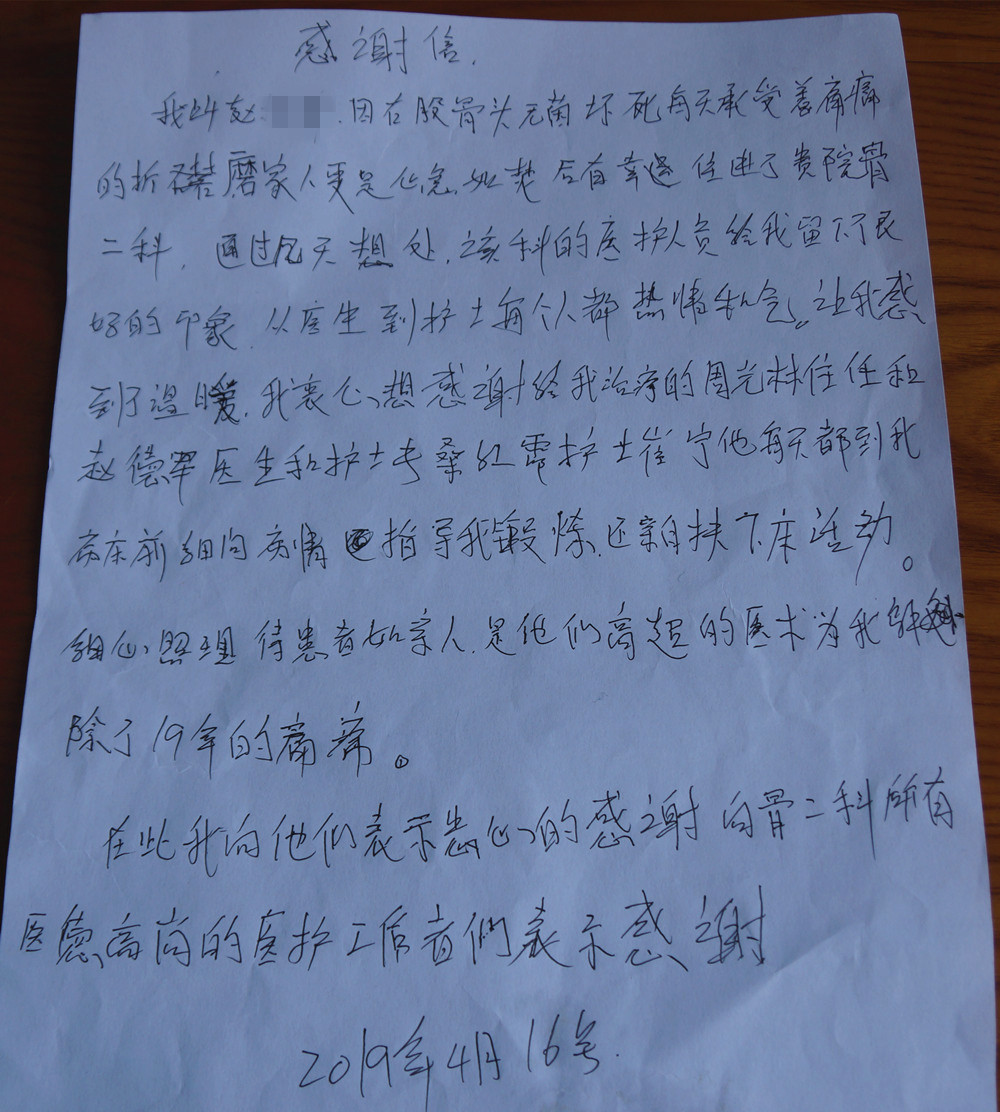 感谢信.
我叫赵 .因右股骨头无菌坏死每天承受着疼痛
的折磨家人更是心急如焚后有幸遇住进了贵院骨
二科,通过几天想处,该科的医护人员给我留下了良
好的印象,从医生到护士每个人都热情和气。让我感
到了温暖,我衷心想感谢给我治疗的周光林住任和
赵德罕医生和护士长桑红霞护士崔宁他每天都到我
病床前细问病情指导我锻炼,还亲自扶下床活动。
细心照理待患者如亲人.是他们高超的医术为我解
除了19年的痛病。
在此我向他们表示衷心的感谢 向骨二科所有
医德高尚的医护工作者們表示感谢
2019年4月16号.